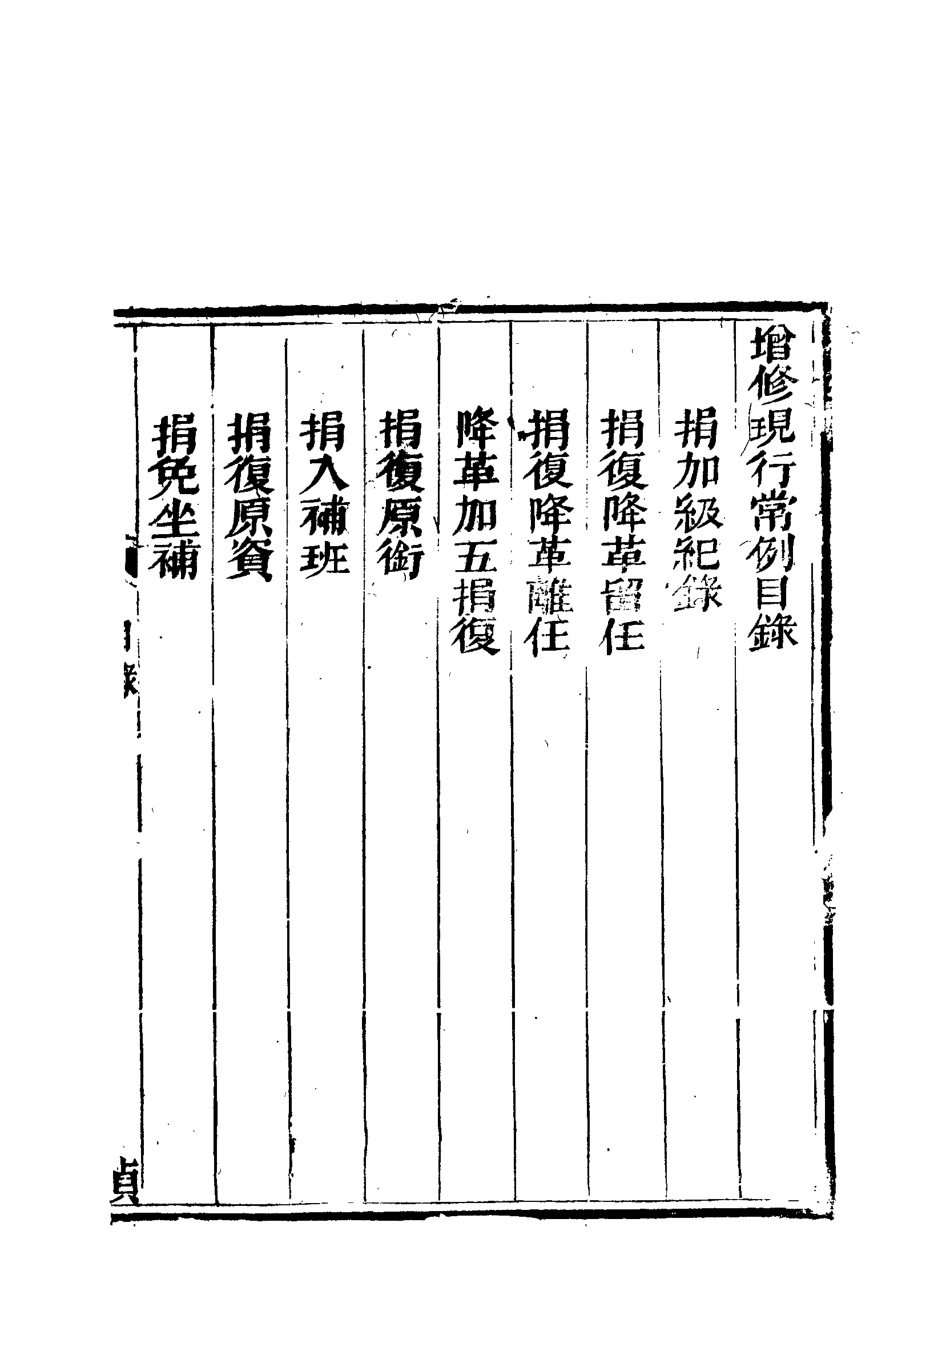 增修現行常例目錄
捐加級紀錄
捐復降革留任
捐復降革離任
降革加五捐復
捐復原銜
捐入補班
捐復原資
捐免坐補
目錄
貞